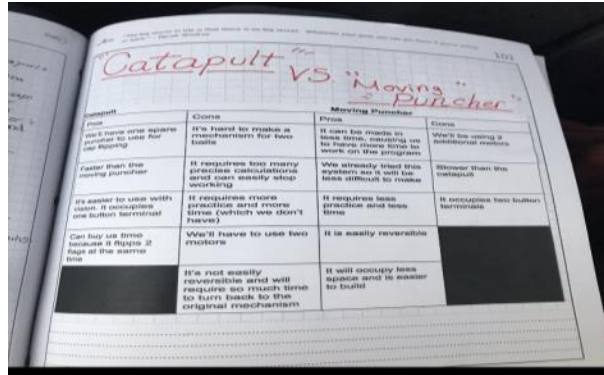 101
"Catapult" vs. "Moving
Puncher"
Catapult
Moving Puncher
Pros
Cons
Pros
Cons
We'll have one spare
puncher to use for
cap flipping
It's hard to make a
mechanism for two
balls
It can be made in
less time, causing us
to have more time to
work on the program
We'll be using 2
additional motors
Faster than the
moving puncher
It requires too many
precise calculations
and can easily stop
working
We already tried this
system so it will be
less difficult to make
Slower than the
catapult
It's easier to use with
vision. It occupies
one button terminal
It requires more
practice and more
time (which we don't
have)
It requires less
practice and less
time
It occupies two button
terminals
Can buy us time
because it flipps 2
flags at the same
time
We'll have to use two
motors
It is easily reversible
It's not easily
reversible and will
require so much time
to turn back to the
original mechanism
It will occupy less
space and is easier
to build